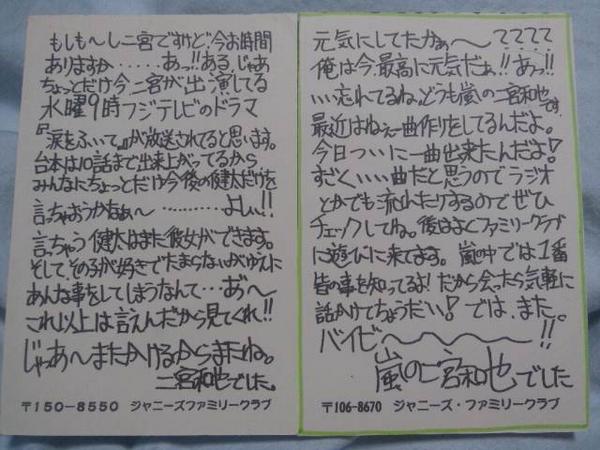 もしも〜し二宮ですけど、今お時間
ありますか……あっ!!ある。じゃあ
ちょっとだけ今、二宮が出演してる
水曜9時フジテレビのドラマ
『涙をふいて』が放送されてると思います。
台本は10話まで出来上がってるから
みんなにちょっとだけ今後の健太だけを
言っちゃおうかなぁ〜…………よしっ!!
言っちゃう健太はまた彼女ができます。
そして、その子が好きでたまらないがゆえに
あんな事をしてしまうなんて…あ゛〜
これ以上は言えんだから見てくれ!!
じゃあ〜またかけるからまたね。
二宮和也でした。
〒150-8550 ジャニーズファミリークラブ
元気にしてたかぁ〜ててててて
俺は今、最高に元気だぁ!!あっ!!
いい忘れてるね。どうも嵐の二宮和也です。
最近はねぇ一曲作りをしてるんだよ。
今日ついに一曲出来たんだよ!
すごくいい曲だと思うのでラジオ
とかでも流れたりするのでぜひ
チェックしてね。後はよくファミリークラブ
に遊びに来てます。嵐の中では1番
皆の事を知ってるよ!だから会ったら気軽に
話かけてちょうだい!では、また。
バイビ〜〜〜〜!!
嵐の二宮和也でした
〒106-8670 ジャニーズ・ファミリークラブ